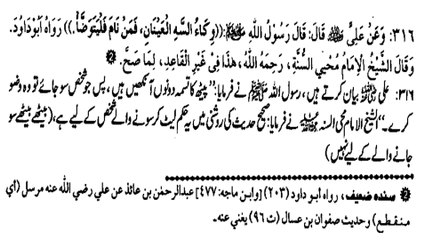 ٣١٦: وَعَنْ عَلِيٍّ ﷺ قَالَ: قَالَ رَسُوْلُ اللّٰهِ ﷺ: ((وِكَاءُ السَّهِ الْعَيْنَانِ، فَمَنْ نَامَ فَلْيَتَوَضَّأْ.)) رَوَاهُ اَبُوْدَاوُدَ.
وَقَالَ الشَّيْخُ الْاِمَامُ مُحْيِى السُّنَّةِ، رَحِمَهُ اللّٰهُ: هٰذَا فِىْ غَيْرِ الْقَاعِدِ، لِمَا صَحَّ. ✵
٣١٦: علی بیان کرتے ہیں، رسول اللہ ﷺ نے فرمایا: ’’پیٹھ کا تسمہ دونوں آنکھیں ہیں، پس جو شخص سو جائے تو وہ وضو
کرے۔‘‘ الشیخ الامام محی السنہ نے فرمایا: صحیح حدیث کی روشنی میں یہ حکم لیٹ کر سونے والے شخص کے لیے ہے، (بیٹھے بیٹھے سو
جانے والے کے لیے نہیں)
✵ سنده ضعيف، رواه أبو داود (٢٠٣) [وابن ماجه: ٤٧٧] عبدالرحمٰن بن عائذ عن علي رضي الله عنه مرسل (أي
منقطع) وحديث صفوان بن عسال (ت ٩٦) يغني عنه۔